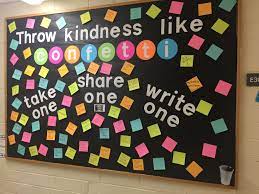 Throw kindness like
confetti
take one
share one
write one